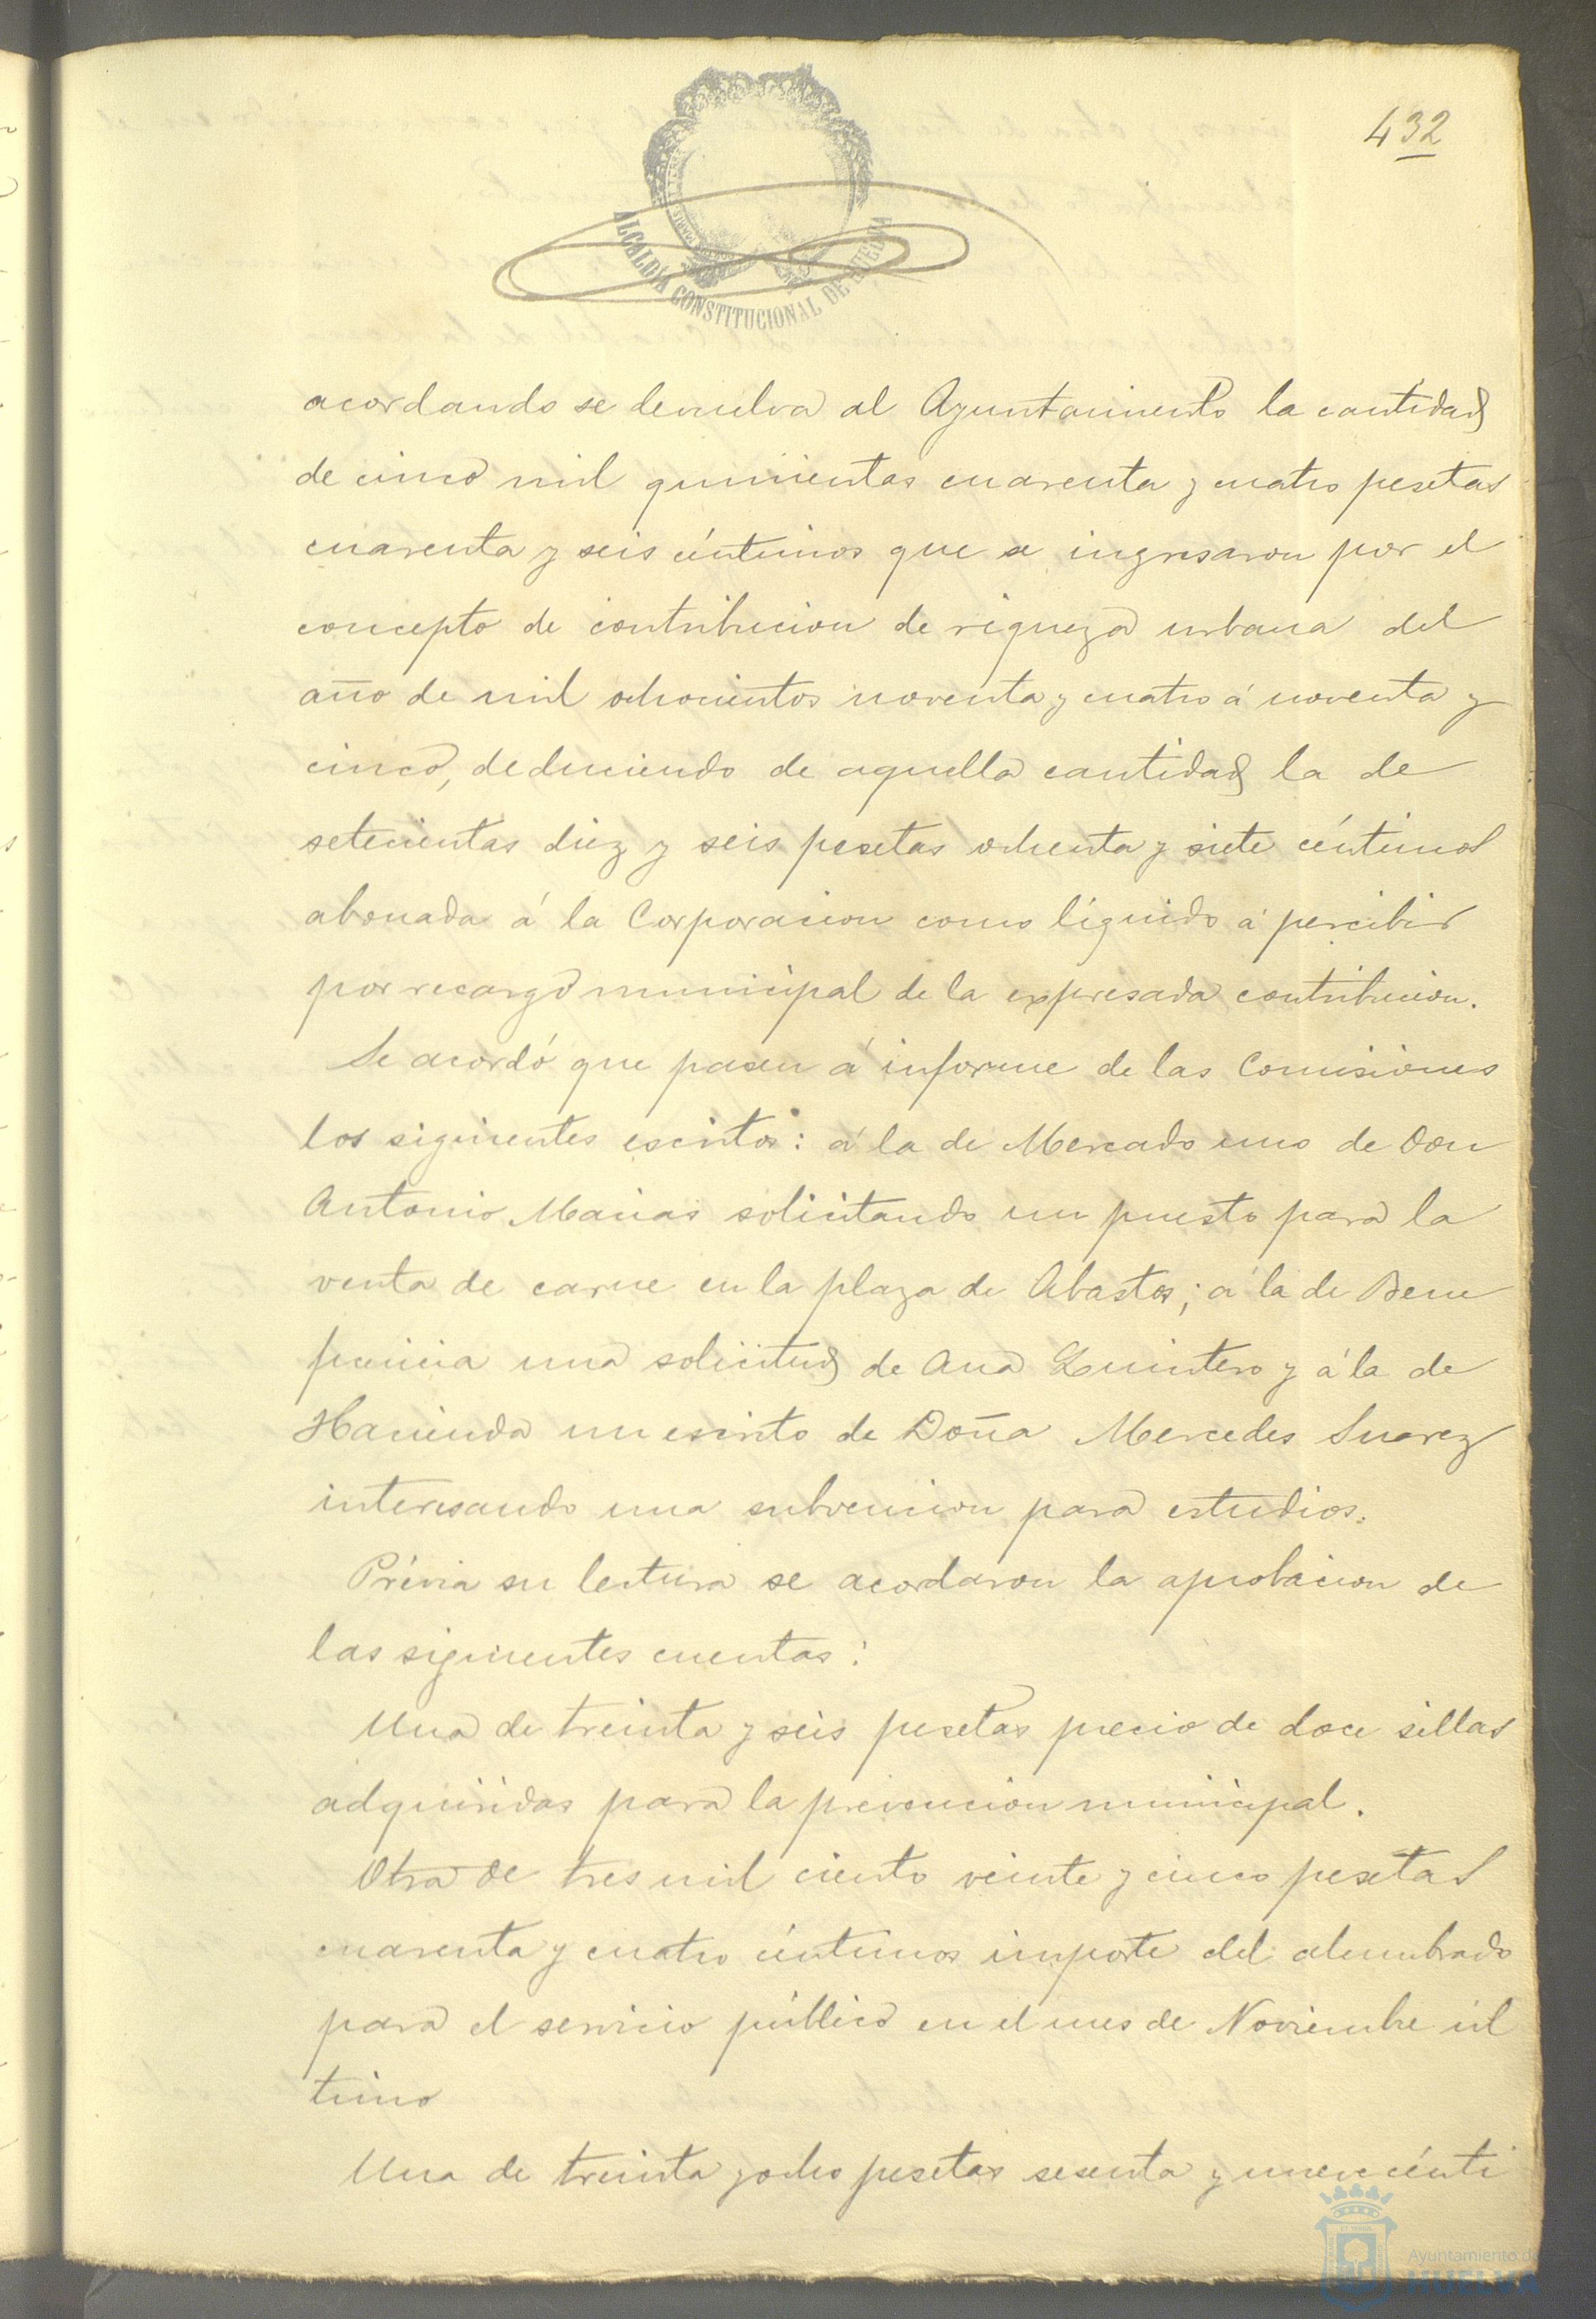 432
ALCALDIA CONSTITUCIONAL DE HUELVA
acordando se devuelva al Ayuntamiento la cantidad
de cinco mil quinientas cuarenta y cuatro pesetas
cuarenta y seis céntimos que se ingresaron por el
concepto de contribucion de riqueza urbana del
año de mil ochocientos noventa y cuatro á noventa y
cinco, deduciendo de aquella cantidad la de
setecientas diez y seis pesetas ochenta y siete céntimos
abonada á la Corporacion como líquido á percibir
por recargo municipal de la expresada contribucion.
Se acordó que pasen á informe de las Comisiones
los siguientes escritos: á la de Mercado uno de Don
Antonio Macias solicitando un puesto para la
venta de carne en la plaza de Abastos; á la de Bene
ficencia una solicitud de Ana Quintero y á la de
Hacienda un escrito de Doña Mercedes Suarez
interesando una subvencion para estudios.
Prévia su lectura se acordaron la aprobacion de
las siguientes cuentas:
Una de treinta y seis pesetas precio de doce sillas
adquiridas para la prevencion municipal.
Otra de tres mil ciento veinte y cinco pesetas
cuarenta y cuatro céntimos importe del alumbrado
para el servicio público en el mes de Noviembre úl
timo
Una de treinta y ocho pesetas sesenta y nueve cénti
Ayuntamiento de
HUELVA